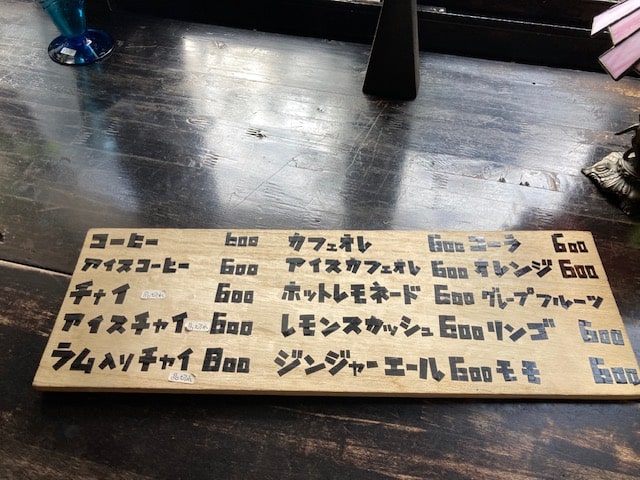 コーヒー 600 カフェオレ 600 コーラ 600
アイスコーヒー 600 アイスカフェオレ 600 オレンジ 600
チャイ 品切れ 600 ホットレモネード 600 グレープフルーツ
アイスチャイ 品切れ 600 レモンスカッシュ 600 リンゴ 600
ラム入りチャイ 800 ジンジャーエール 600 モモ 600
品切れ